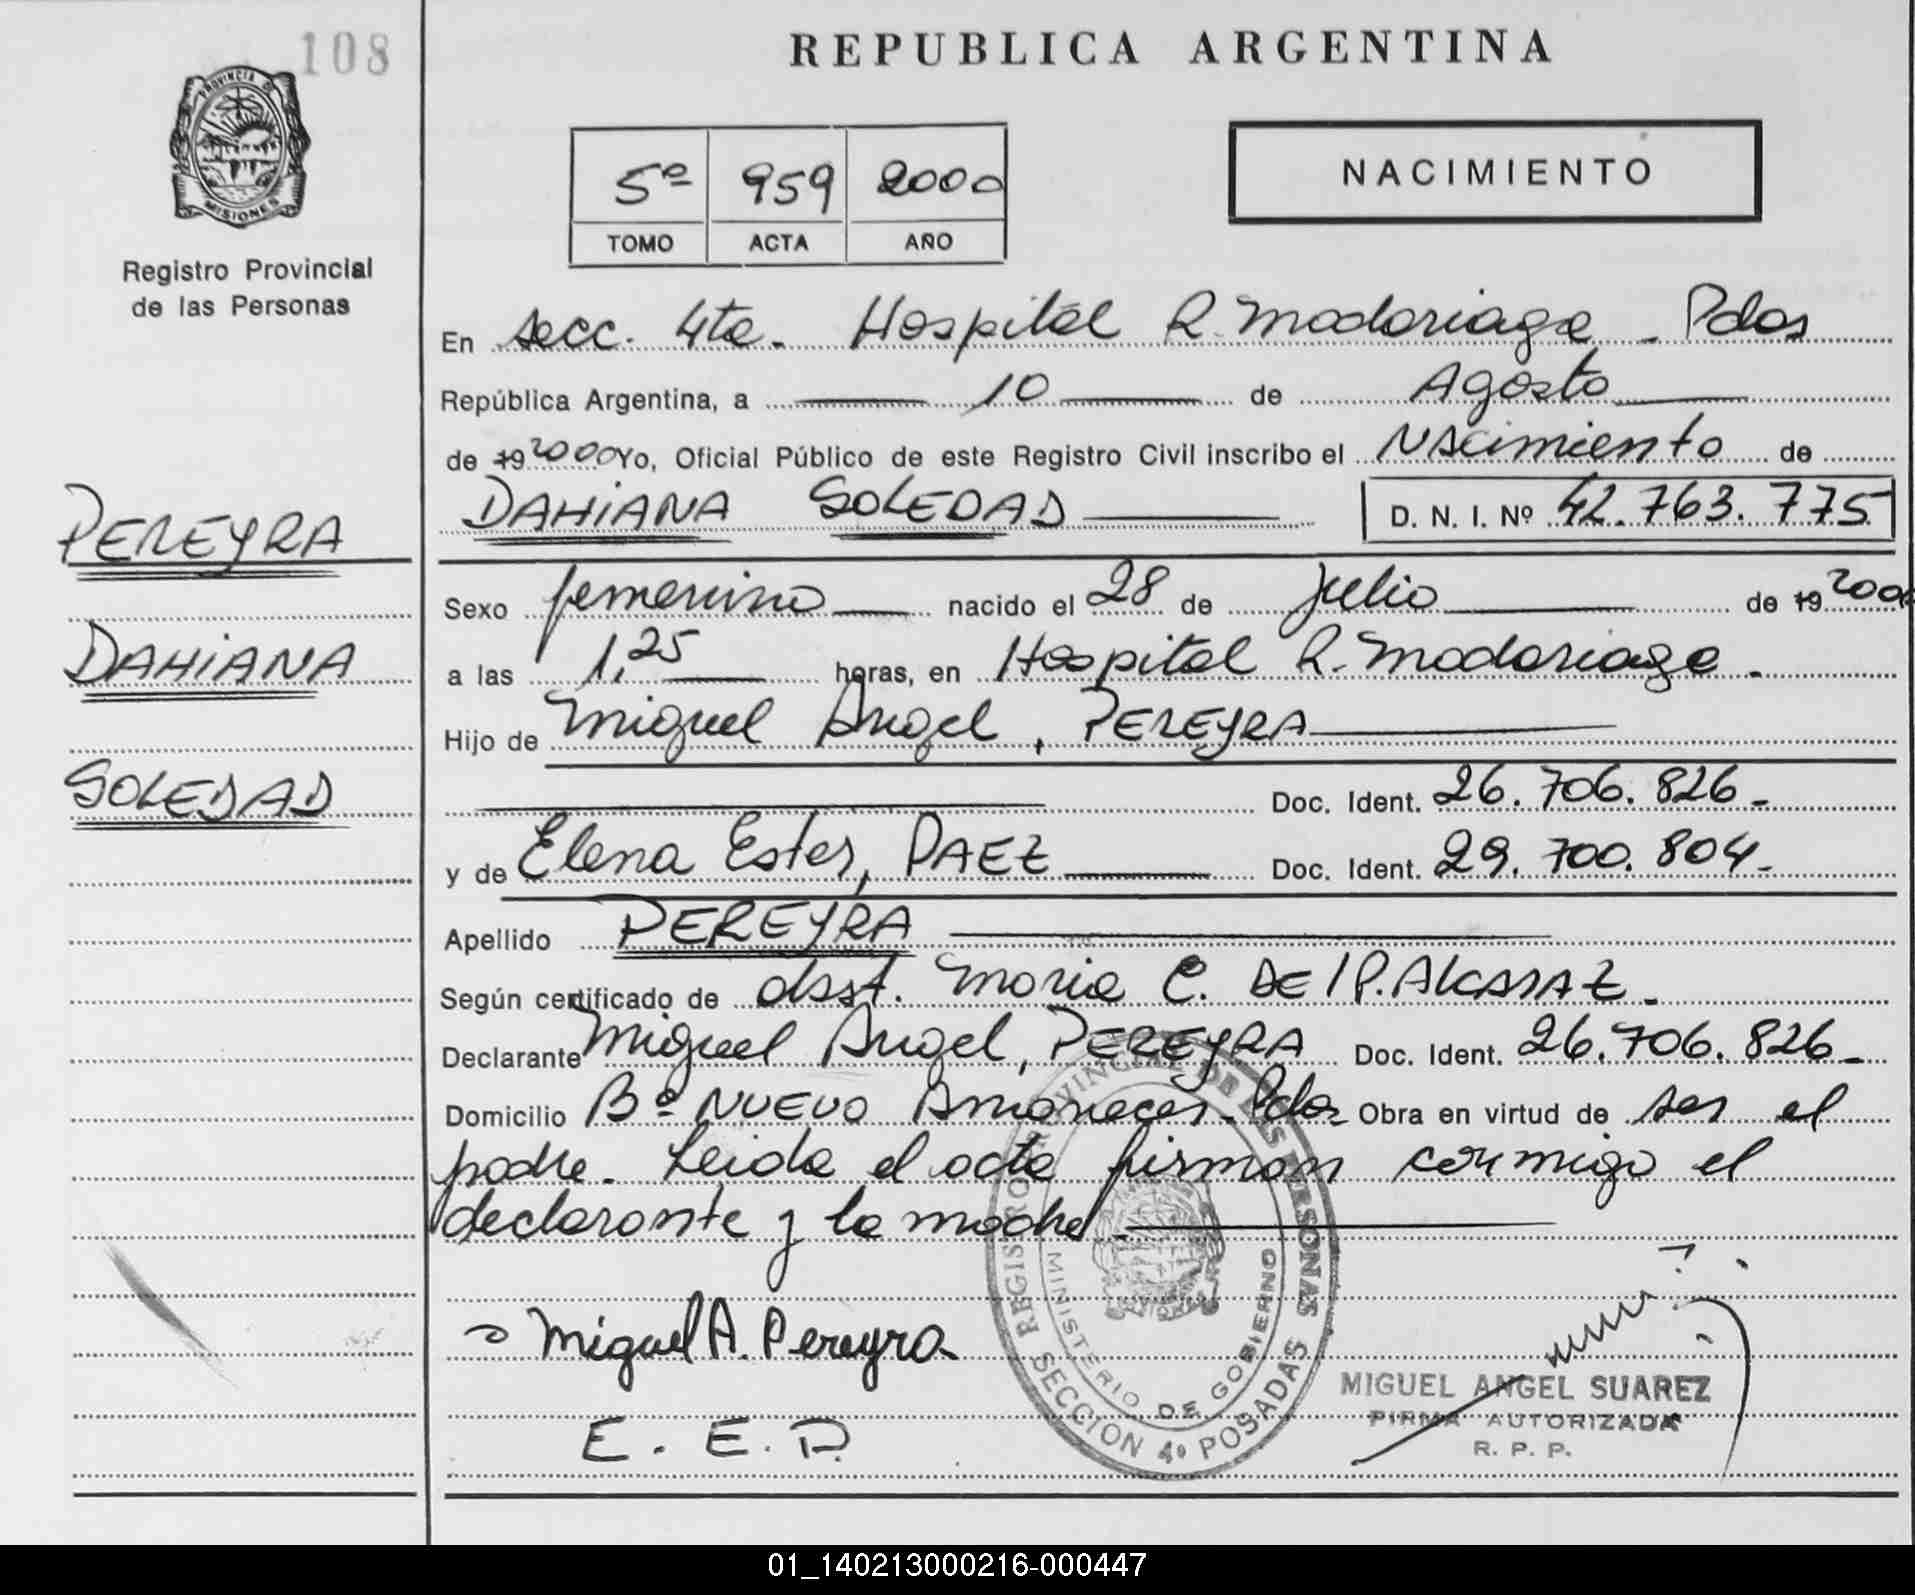 108
REPUBLICA ARGENTINA
PROVINCIA DE
MISIONES
Registro Provincial
de las Personas
5º 959 2000
TOMO ACTA AÑO
NACIMIENTO
En secc. 4ta. Hospital R. Madariaga - Pdas
República Argentina, a 10 de Agosto
de 19 2000 Yo, Oficial Público de este Registro Civil inscribo el Nacimiento de
DAHIANA SOLEDAD D. N. I. Nº 42.763.775
PEREYRA
DAHIANA
SOLEDAD
Sexo femenino nacido el 28 de Julio de 19 2000
a las 1,25 horas, en Hospital R. Madariaga.
Hijo de Miguel Angel, PEREYRA
Doc. Ident. 26.706.826-
y de Elena Ester, PAEZ Doc. Ident. 29.700.804-
Apellido PEREYRA
Según certificado de obst. Maria E. DE P. ALCARAZ.
Declarante Miguel Angel, PEREYRA Doc. Ident. 26.706.826-
Domicilio Bº NUEVO Amanecer - Pdas Obra en virtud de ser el
padre. Leida el acta firman conmigo el
declarante y la madre.
Miguel A. Pereyra
E. E. P.
REGISTRO PROVINCIAL DE LAS PERSONAS
MINISTERIO DE GOBIERNO
SECCION 4º POSADAS
MIGUEL ANGEL SUAREZ
FIRMA AUTORIZADA
R. P. P.
01_140213000216-000447